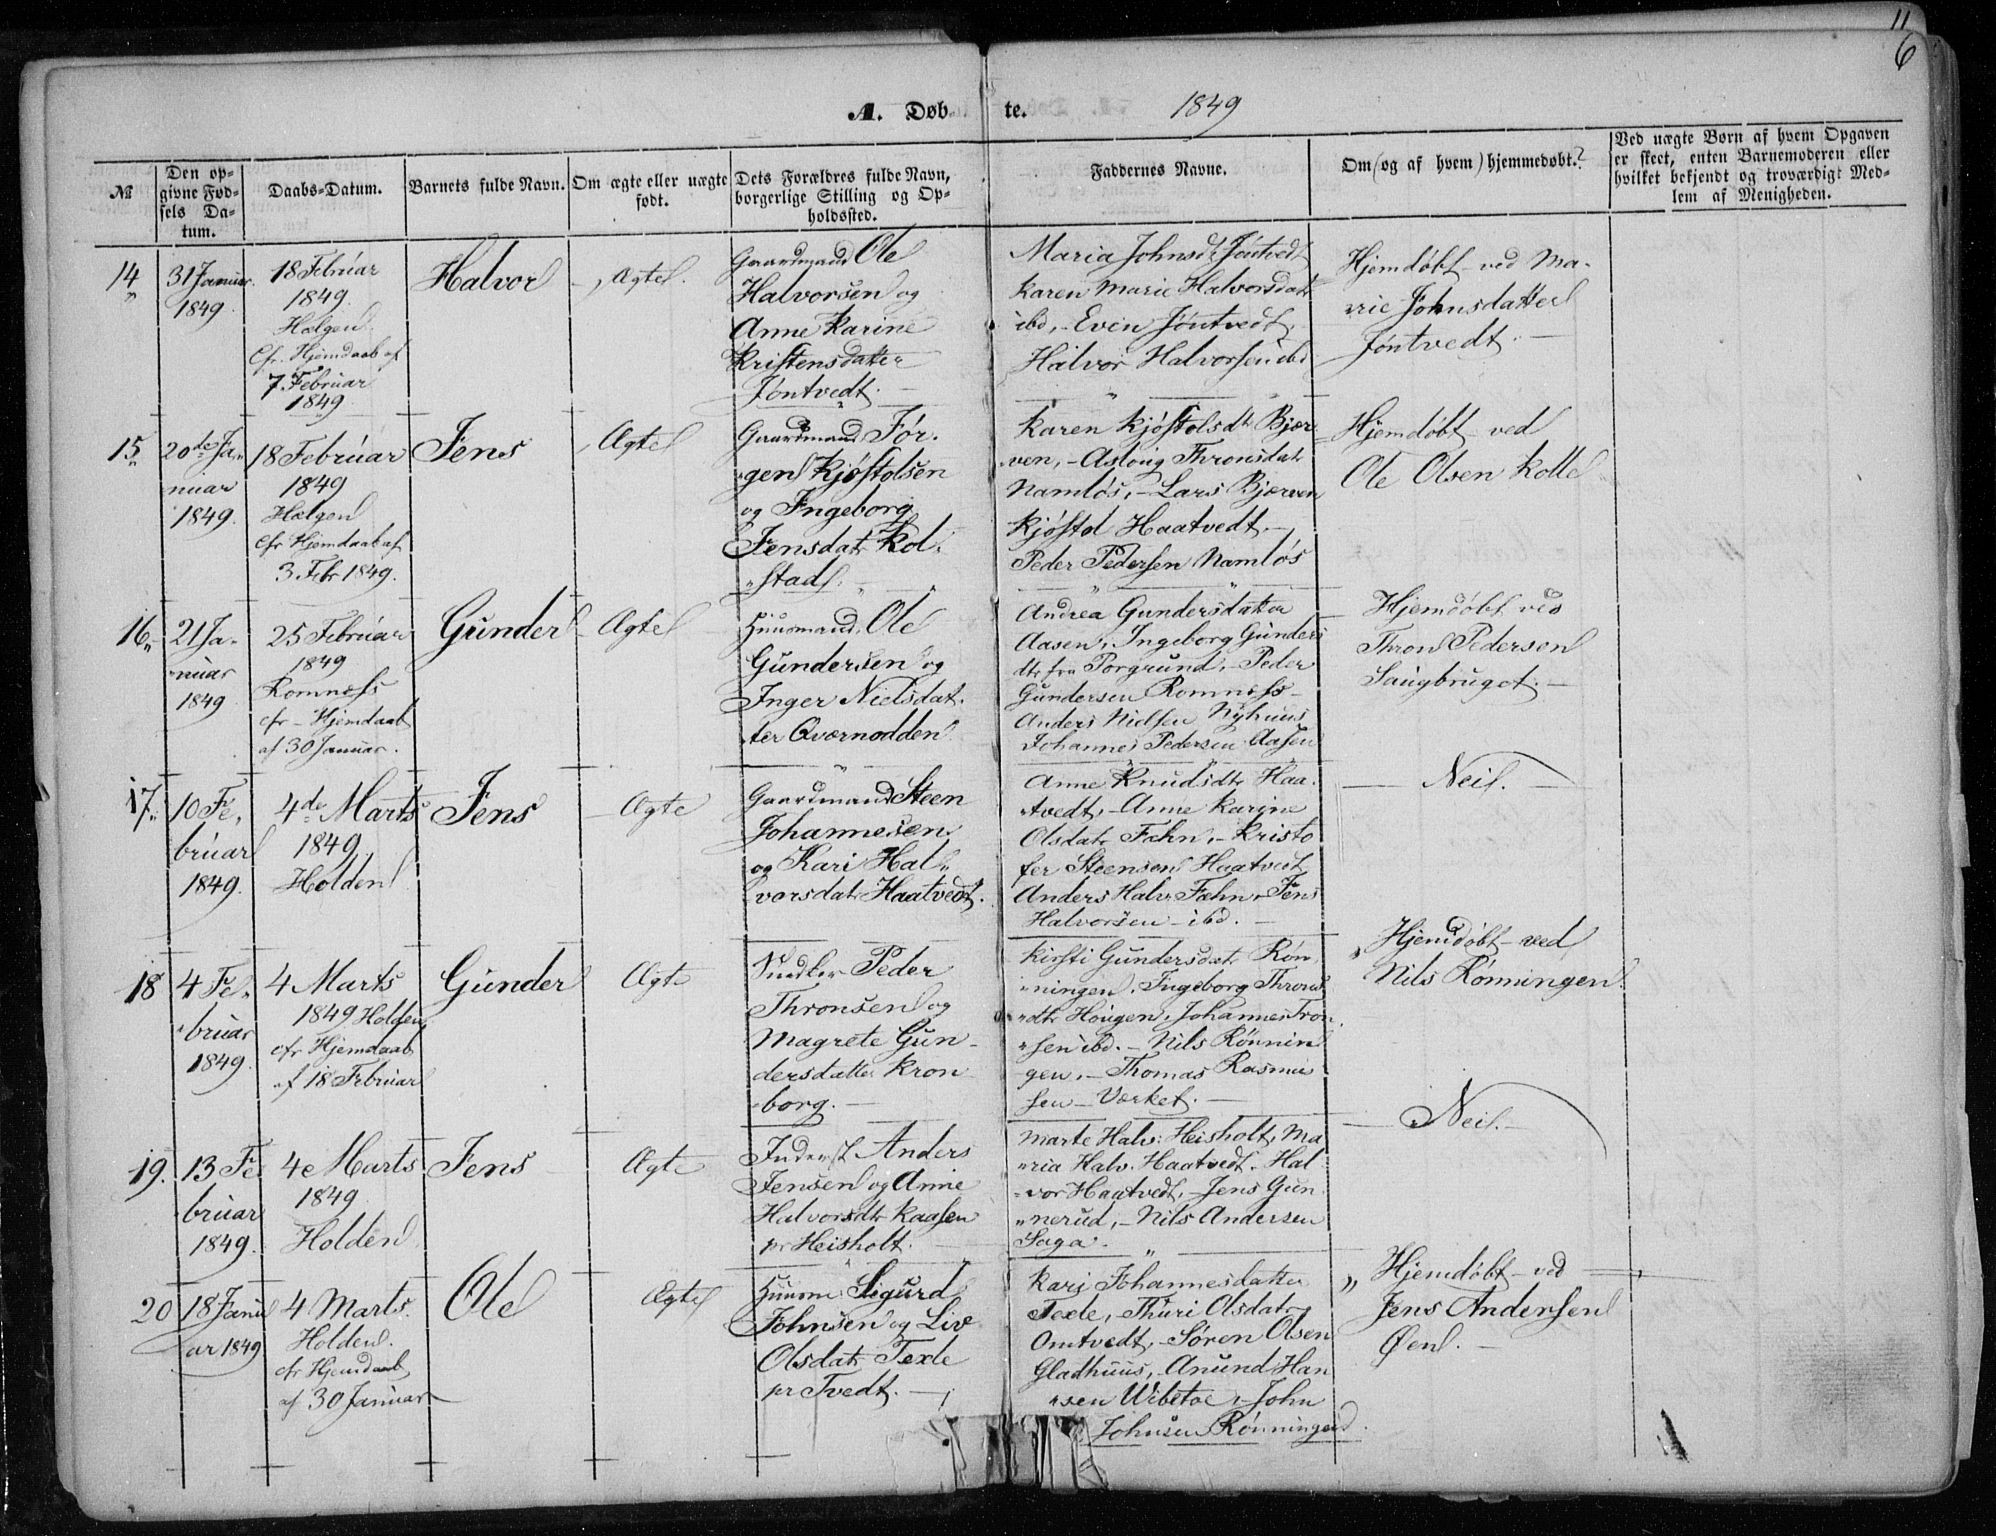 11
6
A. Døbte. 1849
№
Den opgivne Fødsels Datum.
Daabs-Datum.
Barnets fulde Navn.
Om ægte eller uægte født.
Dets Forældres fulde Navn, borgerlige Stilling og Opholdssted.
Faddernes Navne.
Om (og af hvem) hjemmedøbt?
Ved uægte Børn af hvem Opgaven er skeet, enten Barnemoderen eller hvilket bekjendt og troværdigt Medlem af Menigheden.
14
31 Januar
1849
18 Februar
1849
Hælgen
Cfr. Hjemdaab af
7. Februar
1849
Halvor
Ægte
Gaardmand Ole
Halvorsen og
Anne Karine
Kristensdatter
Jöntvedt.
Maria Johnsdt Jöntvedt
Karen Marie Halvorsdatr
ibd, - Even Jöntvedt,
Halvor Halvorsen ibd
Hjemdøbt ved Ma-
rie Johnsdatter
Jöntvedt.
15
20de Ja-
nuar
1849
18 Februar
1849
Hælgen
cfr Hjemdaab af
3. Febr 1849.
Jens
Ægte
Gaardmand Jør-
gen Kjøstolsen
og Ingeborg
Jensdatr Kol-
stad.
Karen Kjøstolsdtr Bjær-
ven, - Asloug Thronsdatr
Namløs, - Lars Bjærven
Kjøstol Haatvedt. -
Peder Pedersen Namløs
Hjemdøbt ved
Ole Olsen Kolle
16
21 Ja-
nuar
1849
25 Februar
1849
Romnæss
cfr - Hjemdaab
af 30 Januar.
Gunder
Ægte
Huusmand Ole
Gundersen og
Inger Nielsdat-
ter Qvernodden
Andrea Gundersdatter
Aasen, Ingeborg Gunders
dtr fra Porgrund, - Peder
Gundersen Romnæss -
Anders Nielsen Nyhuus
Johannes Pedersen Aasen
Hjemdøbt ved
Thron Pedersen
Saugbruget. -
17
10 Fe-
bruar
1849.
4de Marts
1849
Holden
Jens
Ægte
Gaardmand Steen
Johannesen
og Kari Hal-
vorsdatr Haatvedt.
Anne Knudsdtr Haa-
tvedt, - Anne Karine
Olsdatr Fæhn, - Kristo
fer Steensen Haatvedt
Anders Halv. Fæhn - Jens
Halvorsen - ibd. -
Neil.
18
4 Fe-
bruar
1849
4 Marts
1849 Holden
cfr Hjemdaab
af 18 Februar
Gunder
Ægte
Snedker Peder
Thronsen og
Magrete Gun-
dersdatter Kron-
borg. -
Kirsti Gundersdatr Røn-
ningen, Ingeborg Throns
dtr Hougen, Johannes Tron-
sen ibd. - Nils Rønnin
gen, - Thomas Rasmus
sen - Værket. -
Hjemdøbt ved
Nils Rønningen
19.
13 Fe-
bruar
1849.
4e Marts
1849
Holden
Jens
Ægte
Inderst Anders
Jensen og Anne
Halvorsdtr Kaasen
pr Heisholt.
Marte Halv: Heisholt, Ma
ria Halv. Haatvedt. Hal
vor Haatvedt, - Jens Gun
nerud, - Nils Andersen
Saga.
Neil. -
20
18 Janu
ar 1849
4 Marts.
Holden.
cfr Hjemdaab
af 30 Januar
Ole
Ægte
Huusm. Sigurd
Johnsen og Liv
Olsdatr Texle
pr Tvedt. -
Kari Johannesdatter
Texle, Thuri Olsdatr
Omtvedt, - Søren Olsen
Gladhuus, Anund Han
sen Wibetoe, - John
Johnsen Rønningen
Hjemdøbt - ved
Jens Andersen
Øen. -